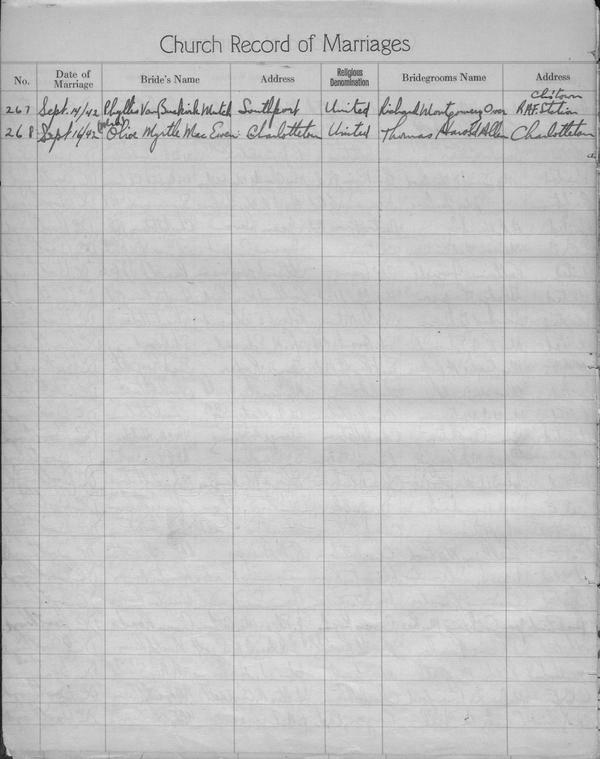 Church Record of Marriages
No. Date of Marriage Bride's Name Address Religious Denomination Bridegrooms Name Address
267 Sept. 4/42 Phyllis Van Buskirk Mutch Southport United Richard Montgomery Ch'town R.A.F. Station
268 Sept 16/42 Olive Myrtle Mac Ewen Charlottetown United Thomas Harold Allen Charlottetown